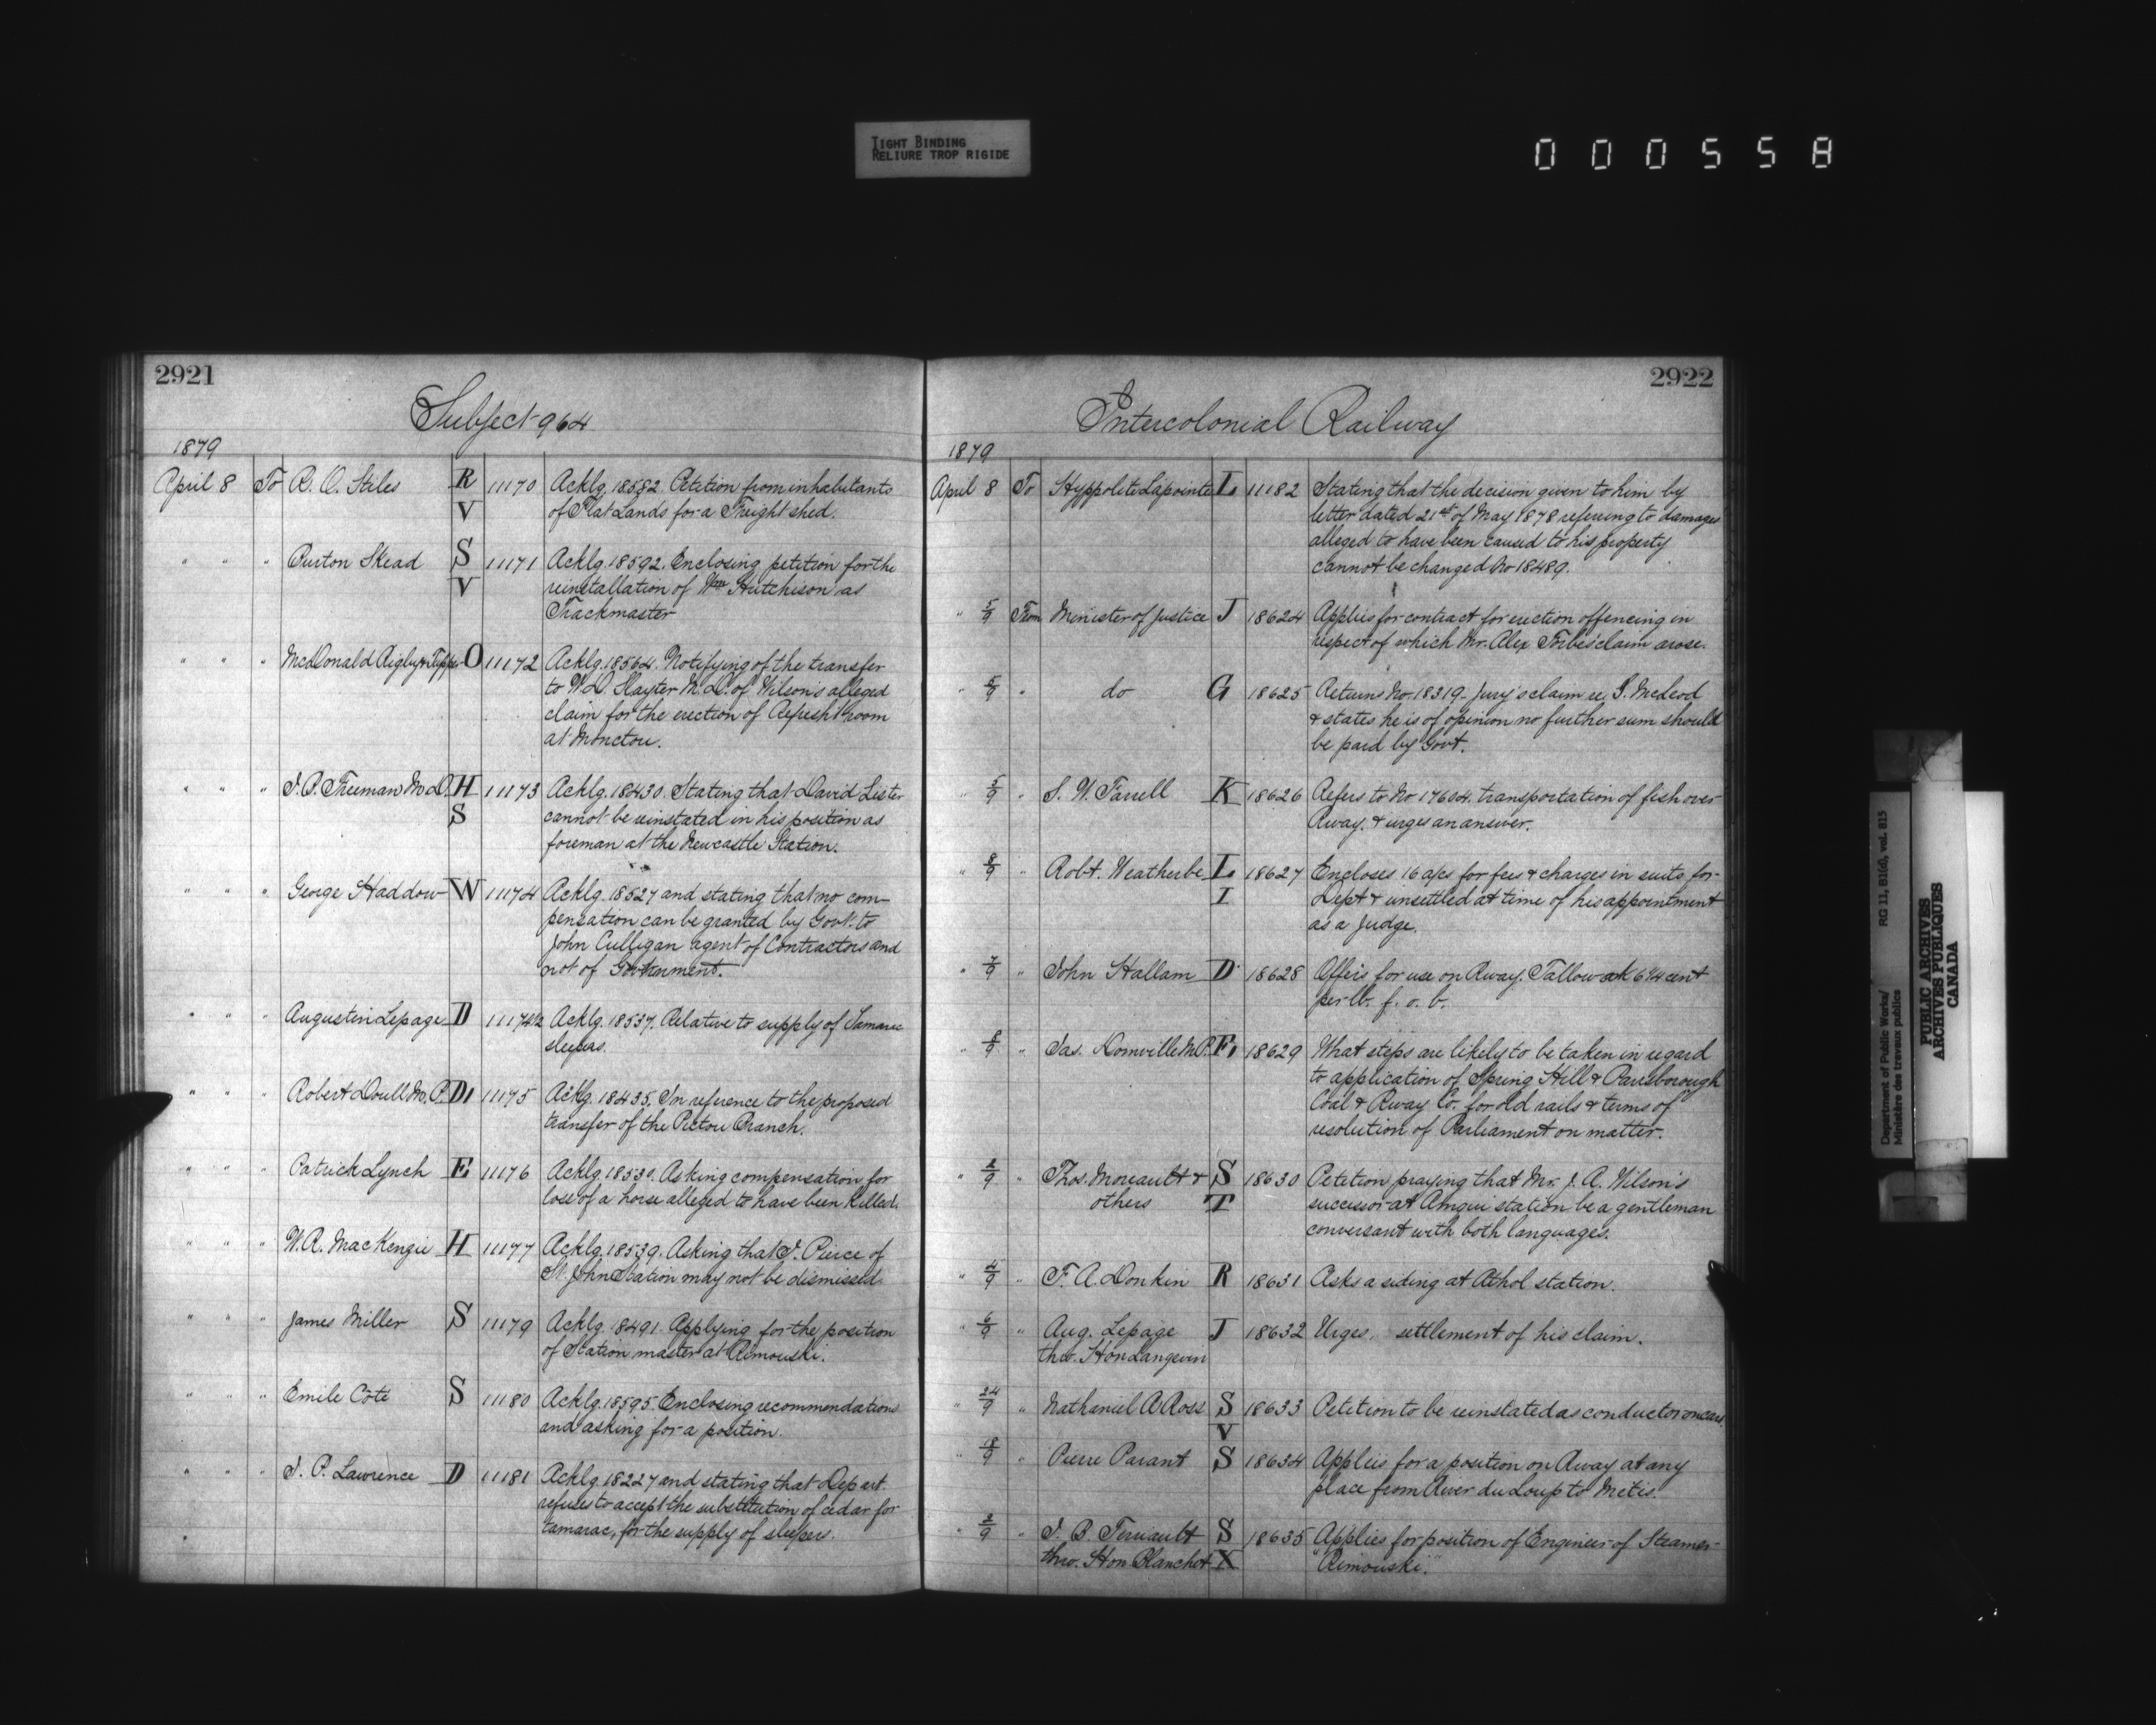 TIGHT BINDING
RELIURE TROP RIGIDE
000558
2921
Subject 964
1879
April 8 To R. O. Stiles R V 11170 Acklg. 18582. Petition from inhabitants
of Flat Lands for a Freight shed.
" " " Burton Skead S V 11171 Acklg. 18592. Enclosing petition for the
reinstallation of Wm Hutchison as
Trackmaster
" " " McDonald Rigby & Tupper O 11172 Acklg. 18564. Notifying of the transfer
to W. D. Slayter M.D. of Wilson's alleged
claim for the erection of Refresht room
at Moncton.
" " " J. P. Freeman M.D. H S 11173 Acklg. 18430. Stating that David Lister
cannot be reinstated in his position as
foreman at the Newcastle Station.
" " " George Haddow W 11174 Acklg. 18527 and stating that no com-
pensation can be granted by Govt. to
John Culligan agent of Contractors and
not of Government.
" " " Augustin Lepage D 11174½ Acklg. 18537. Relative to supply of Tamarac
sleepers.
" " " Robert Doull M.P. D1 11175 Acklg. 18435. In reference to the proposed
transfer of the Pictou Branch.
" " " Patrick Lynch E 11176 Acklg. 18530. Asking compensation for
loss of a horse alleged to have been killed.
" " " W. R. MacKenzie H 11177 Acklg. 18539. Asking that J. Pierce of
St. John Station may not be dismissed.
" " " James Miller S 11179 Acklg. 18491. Applying for the position
of Station master at Rimouski.
" " " Emile Côté S 11180 Acklg. 18595. Enclosing recommendations
and asking for a position.
" " " J. P. Lawrence D 11181 Acklg. 18227 and stating that Depart.
refuses to accept the substitution of cedar for
tamarac, for the supply of sleepers.
2922
Intercolonial Railway
1879
April 8 To Hyppolite Lapointe L 11182 Stating that the decision given to him by
letter dated 21st of May 1878 refering to damages
alleged to have been caused to his property
cannot be changed No 18489.
" 5/9 From Minister of Justice J 18624 Applies for contract for erection of fencing in
respect of which Mr. Alex Forbes claim arose.
" 5/9 " do G 18625 Returns No. 18319- Jury's claim re. S. McLeod
& states he is of opinion no further sum should
be paid by Govt.
" 5/9 " S. W. Farrell K 18626 Refers to No 17604. transportation of fish over
Rway. & urges an answer.
" 8/9 " Robt. Weatherbe L I 18627 Encloses 16 a/cs for fees & charges in suits for
Dept & unsettled at time of his appointment
as a Judge.
" 7/9 " John Hallam D 18628 Offers for use on Rway. Tallow at 6¼ cent
per lb. f. o. b.
" 8/9 " Jas. Domville M.P. F1 18629 What steps are likely to be taken in regard
to application of Spring Hill & Parrsborough
Coal & Rway Co. for old rails & terms of
resolution of Parliament on matter.
" 2/9 " Thos. Moreault & S 18630 Petition praying that Mr. J. A. Wilson's
others T successor at Amqui station be a gentleman
conversant with both languages.
" 4/9 " F. A. Donkin R 18631 Asks a siding at Athol station.
" 6/9 " Aug. Lepage J 18632 Urges, settlement of his claim.
thro. Hon Langevin
" 24/9 " Nathaniel A. Ross S V 18633 Petition to be reinstated as conductor on cars
" 8/9 " Pierre Parant S 18634 Applies for a position on Rway at any
place from River du Loup to Metis.
" 2/9 " J. B. Terriault S 18635 Applies for position of Engineer of Steamer
thro. Hon Blanchet X "Rimouski."
Department of Public Works/ RG 11, B1(d), vol. 815
Ministère des travaux publics
PUBLIC ARCHIVES
ARCHIVES PUBLIQUES
CANADA